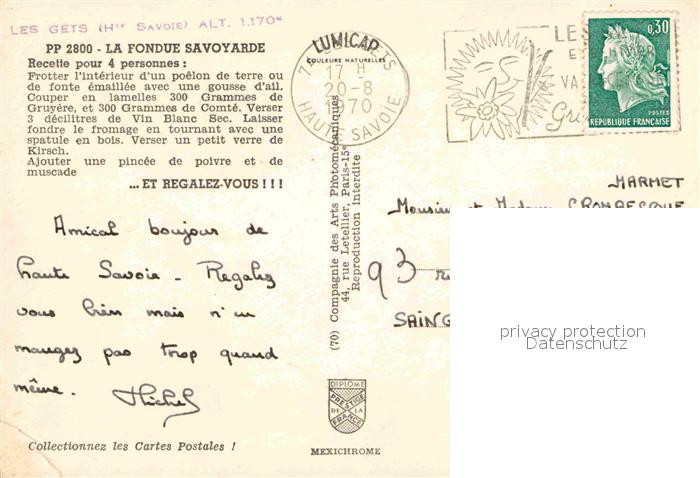 LES GETS (Hte SAVOIE) ALT. 1.170m
PP 2800 - LA FONDUE SAVOYARDE
Recette pour 4 personnes :
Frotter l'intérieur d'un poêlon de terre ou
de fonte émaillée avec une gousse d'ail.
Couper en lamelles 300 Grammes de
Gruyère, et 300 Grammes de Comté. Verser
3 décilitres de Vin Blanc Sec. Laisser
fondre le fromage en tournant avec une
spatule en bois. Verser un petit verre de
Kirsch.
Ajouter une pincée de poivre et de
muscade
...ET REGALEZ-VOUS !!!
Amical bonjour de
haute Savoie - Regalez
vous bien mais n'en
mangez pas trop quand
même. Michel
Collectionnez les Cartes Postales !
LUMICAP
COULEURS NATURELLES
LES GETS
17 H
20-8
1970
HAUTE SAVOIE
(70) Compagnie des Arts Photomécaniques
44, rue Letellier, Paris-15e
Reproduction interdite
DIPLOME
PRESTIGE
DE LA
FRANCE
MEXICHROME
LE
VA
0,30
POSTES
REPUBLIQUE FRANÇAISE
MARMET
Monsieur et Madame
93
SAING
privacy protection
Datenschutz